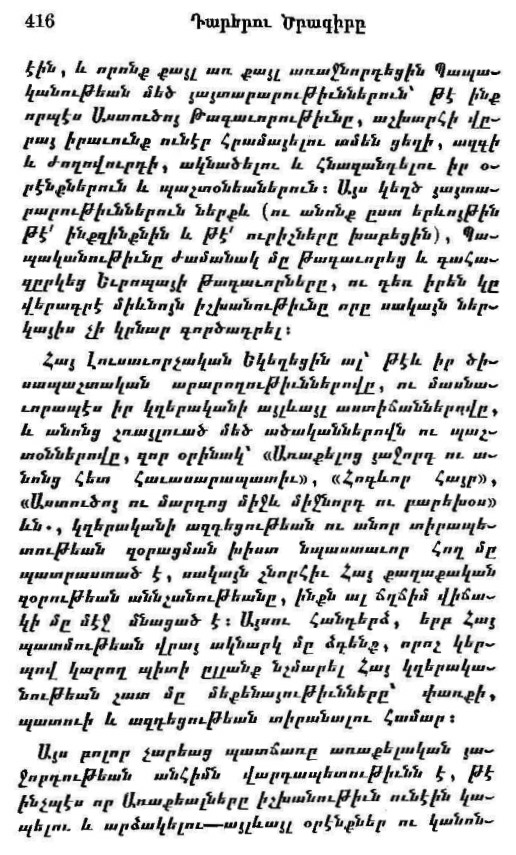 416 Դարերու Ծրագիրը
էին, և որոնք քայլ առ քայլ առաջնորդեցին Պապա-
կանութեան մեծ յայտարարութիւններուն՝ թէ ինք
որպէս Աստուծոյ Թագաւորութիւնը, աշխարհի վը-
րայ իրաւունք ունէր հրամայելու ամեն ցեղի, ազգի
և ժողովուրդի, ակնածելու և հնազանդելու իր օ-
րէնքներուն և պաշտօնեաներուն։ Այս կեղծ յայտա-
րարութիւններուն ներքև (ու անոնք ըստ երևոյթին
թէ՛ ինքզինքնին և թէ՛ ուրիշները խաբեցին), Պա-
պականութիւնը ժամանակ մը թագաւորեց և գահա-
զրկեց Եւրոպայի թագաւորները, ու դեռ իրեն կը
վերագրէ միևնոյն իշխանութիւնը որը սակայն ներ-
կայիս չի կրնար գործադրել։
Հայ Լուսաւորչական Եկեղեցին ալ՝ թէև իր ծի-
սապաշտական արարողութիւններովը, ու մասնա-
ւորապէս իր կղերականի այլևայլ աստիճաններովը,
և անոնց շռայլուած մեծ ածականներովն ու պաշ-
տօններովը, զոր օրինակ՝ «Առաքելոց յաջորդ ու ա-
նոնց հետ հաւասարապատիւ», «Հոգևոր Հայր»,
«Աստուծոյ ու մարդոց միջև միջնորդ ու բարեխօս»
ևն., կղերականի ազդեցութեան ու անոր տիրապե-
տութեան զօրացման խիստ նպաստաւոր հող մը
պատրաստած է, սակայն շնորհիւ Հայ քաղաքական
զօրութեան աննշանութեանը, ինքն ալ ճղճիմ վիճա-
կի մը մէջ մնացած է։ Այսու հանդերձ, երբ Հայ
պատմութեան վրայ ակնարկ մը ձգենք, որոշ կեր-
պով կարող պիտի ըլլանք նշմարել Հայ կղերակա-
նութեան շատ մը մեքենայութիւնները՝ փառքի,
պատուի և ազդեցութեան տիրանալու համար։
Այս բոլոր չարեաց պատճառը առաքելական յա-
ջորդութեան անհիմն վարդապետութիւնն է, թէ
ինչպէս որ Առաքեալները իշխանութիւն ունէին կա-
պելու և արձակելու—այլևայլ օրէնքներ ու կանոն-